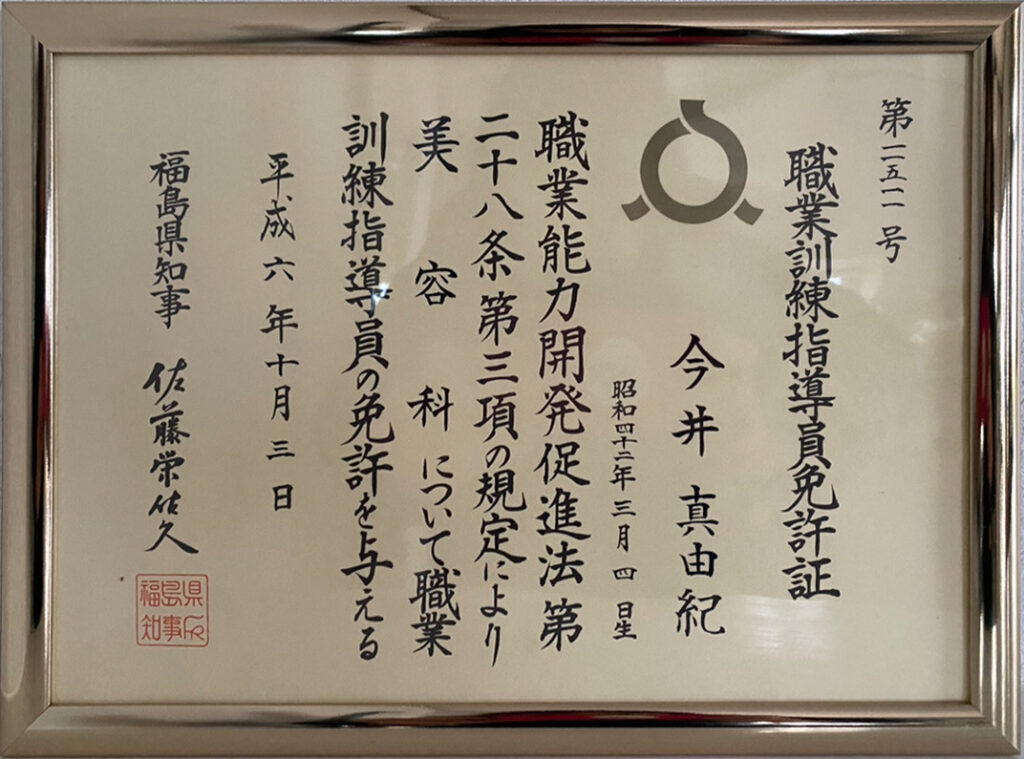 第二五二号
職業訓練指導員免許証
今井真由紀
昭和四十二年三月四日生
職業能力開発促進法第
二十八条第三項の規定により
美容科について職業
訓練指導員の免許を与える
平成六年十月三日
福島県知事 佐藤栄佐久
福島県
知事印